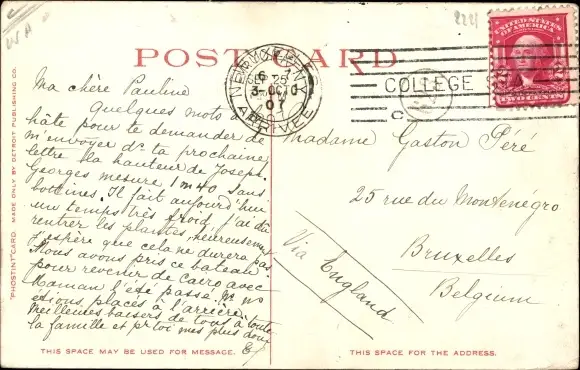 U.S.A
POST CARD
UNITED STATES OF AMERICA
TWO CENTS
SEP 25
3-
07
ARRIVEE
COLLEGE
Ma chère Pauline
Quelques mots à
hâte pour te demander de
m'envoyer ds ta prochaine
lettre la hauteur de Joseph.
Georges mesure 1m40 sans
bottines. Il fait aujourd'hui
un temps très froid, j'ai dû
rentrer les plantes, heureusement
j'espère que cela ne durera pas.
Nous avons pris ce bateau
pour revenir de Cairo avec
Maman l'été passé.
étions placés à l'arrière
Meilleures baisers de tous à toute
la famille et pr toi mes plus doux
E
Madame Gaston Péré
25 rue du Monténégro
Bruxelles
Belgium
Via England
"PHOSTINT" CARD MADE ONLY BY DETROIT PUBLISHING CO.
THIS SPACE MAY BE USED FOR MESSAGE.
THIS SPACE FOR THE ADDRESS.